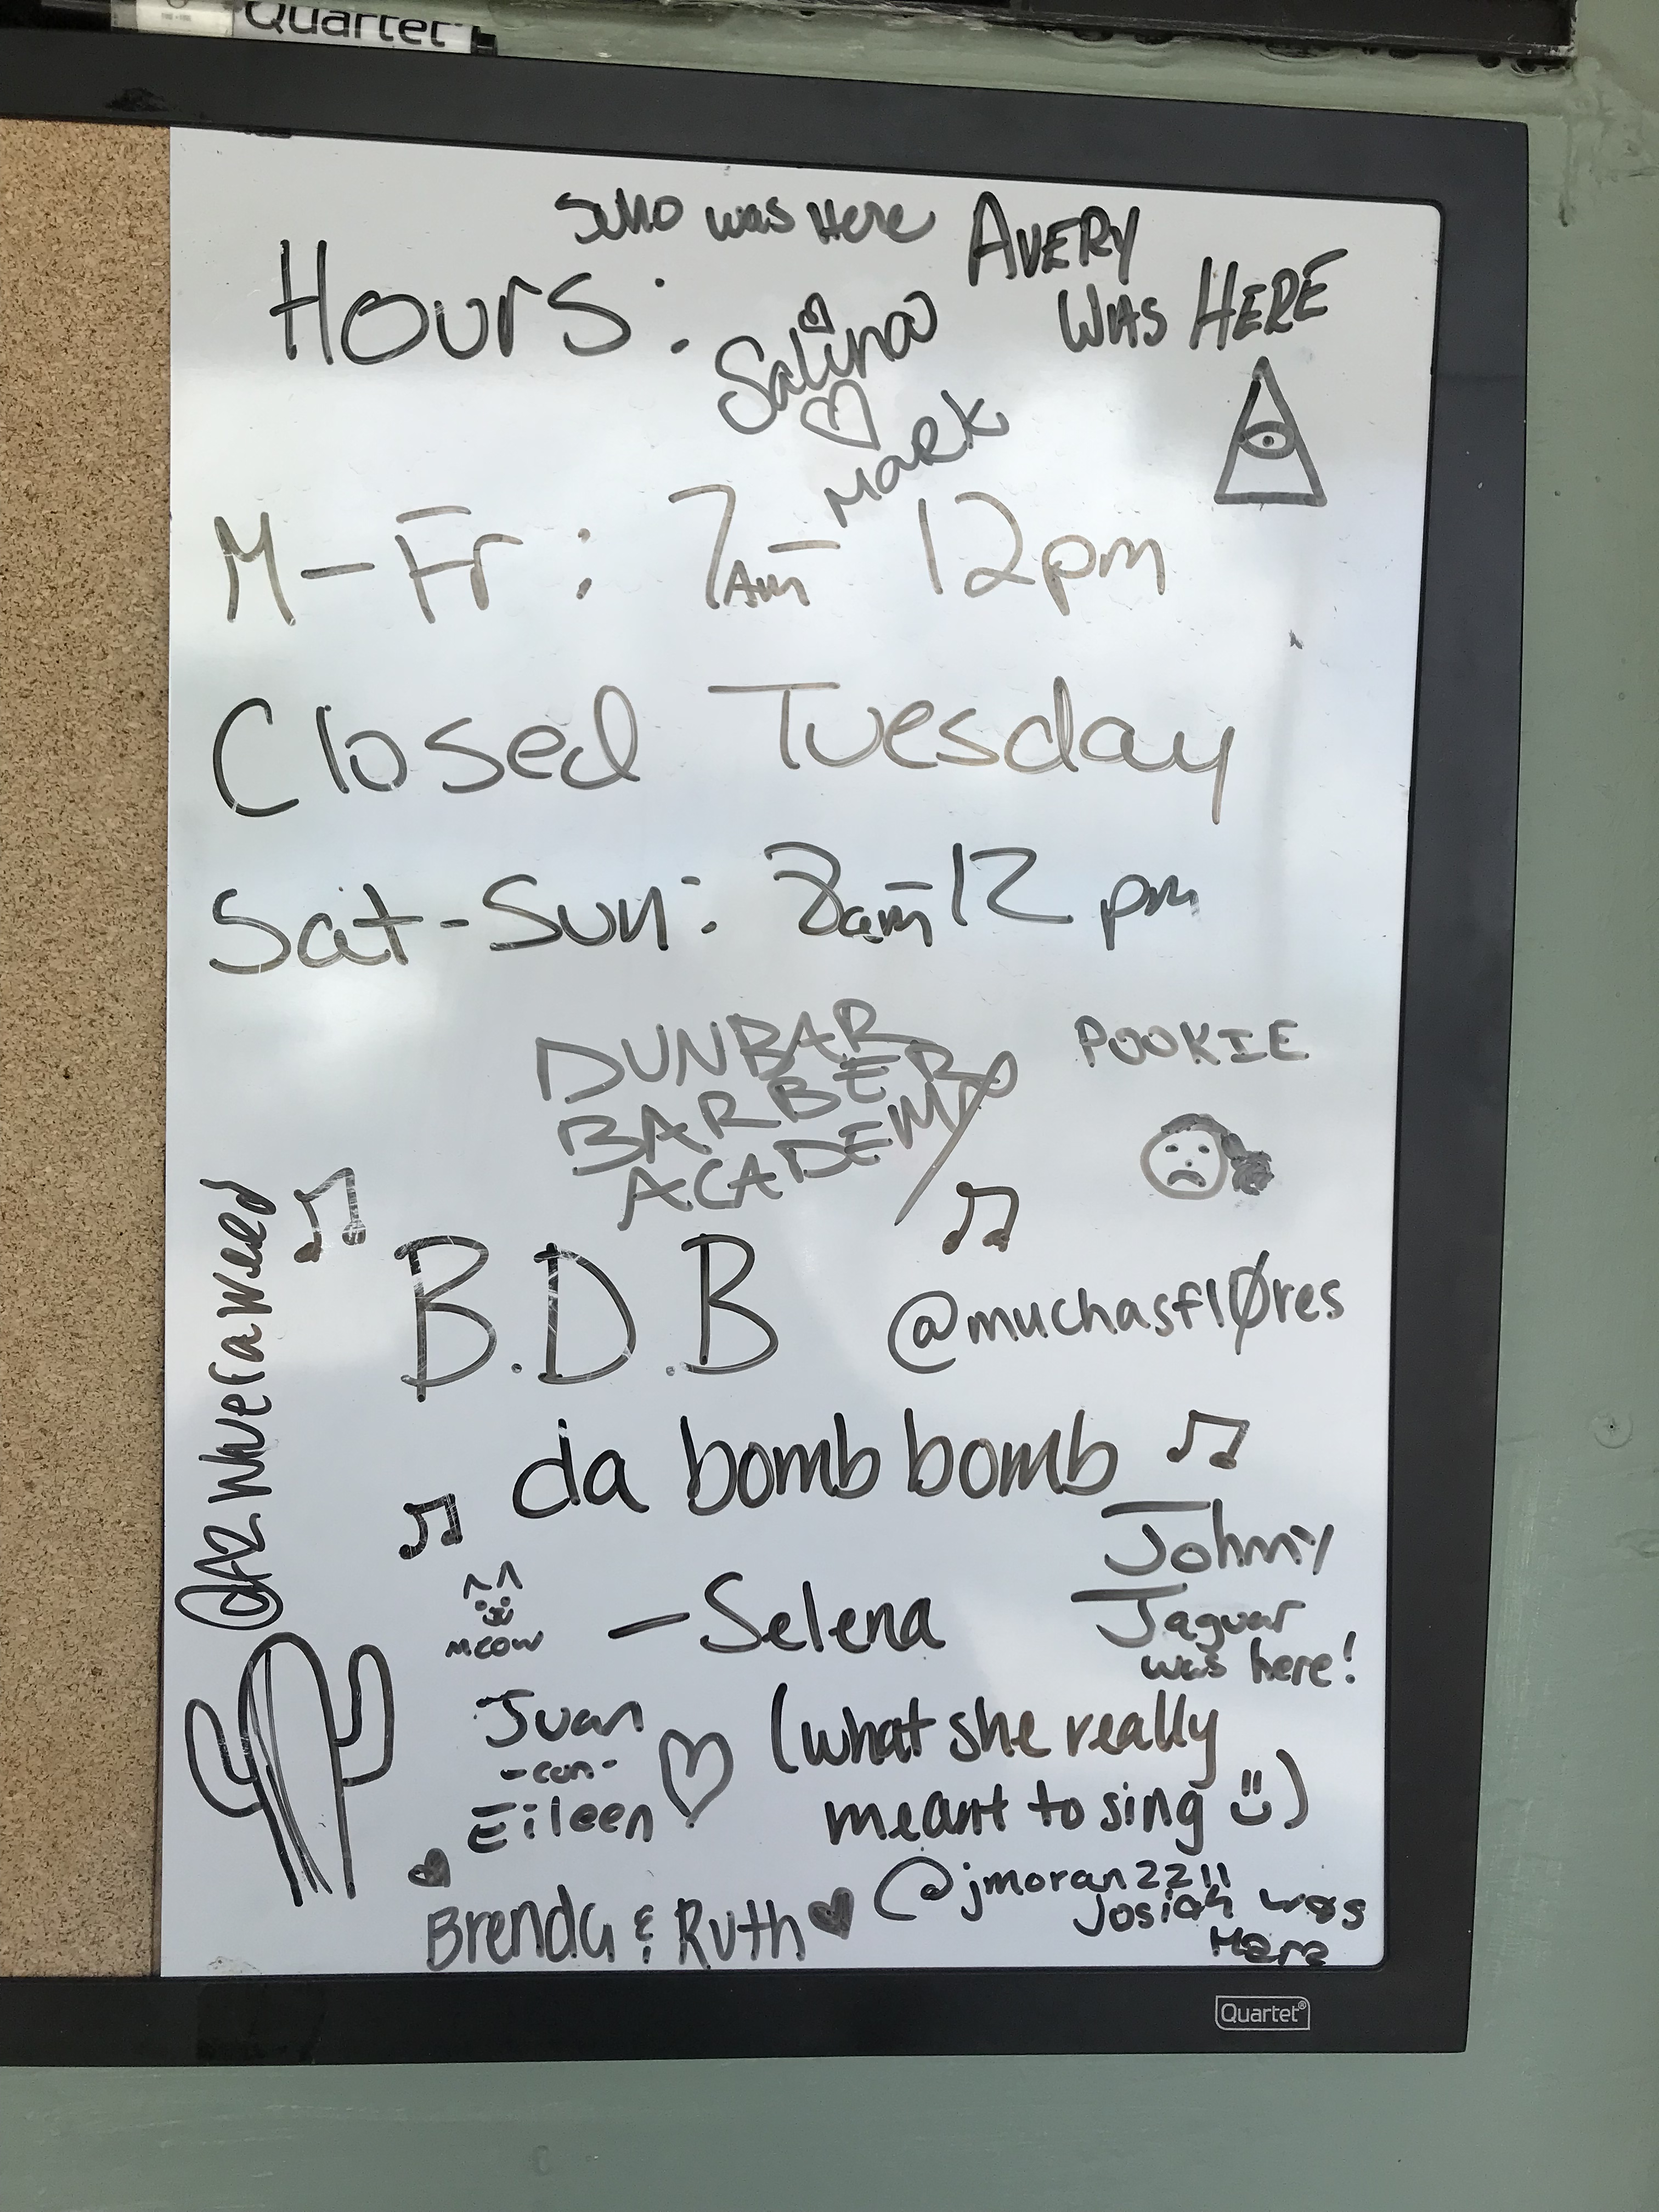 Quartet
was Here
AVERY
WAS HERE
Hours:
Salina
Mark
M-Fr: 7Am- 12pm
Closed Tuesday
Sat-Sun: 8am-12 pm
DUNBAR
BARBER
ACADEMY
POOKIE
B.D.B
@muchasfløres
da bomb bomb
meow
-Selena
Johnny
Jaguar
was here!
Juan
-con-
Eileen
(what she really
meant to sing)
@jmoran2211
Josiah was
Here
Brenda & Ruth
Quartet®